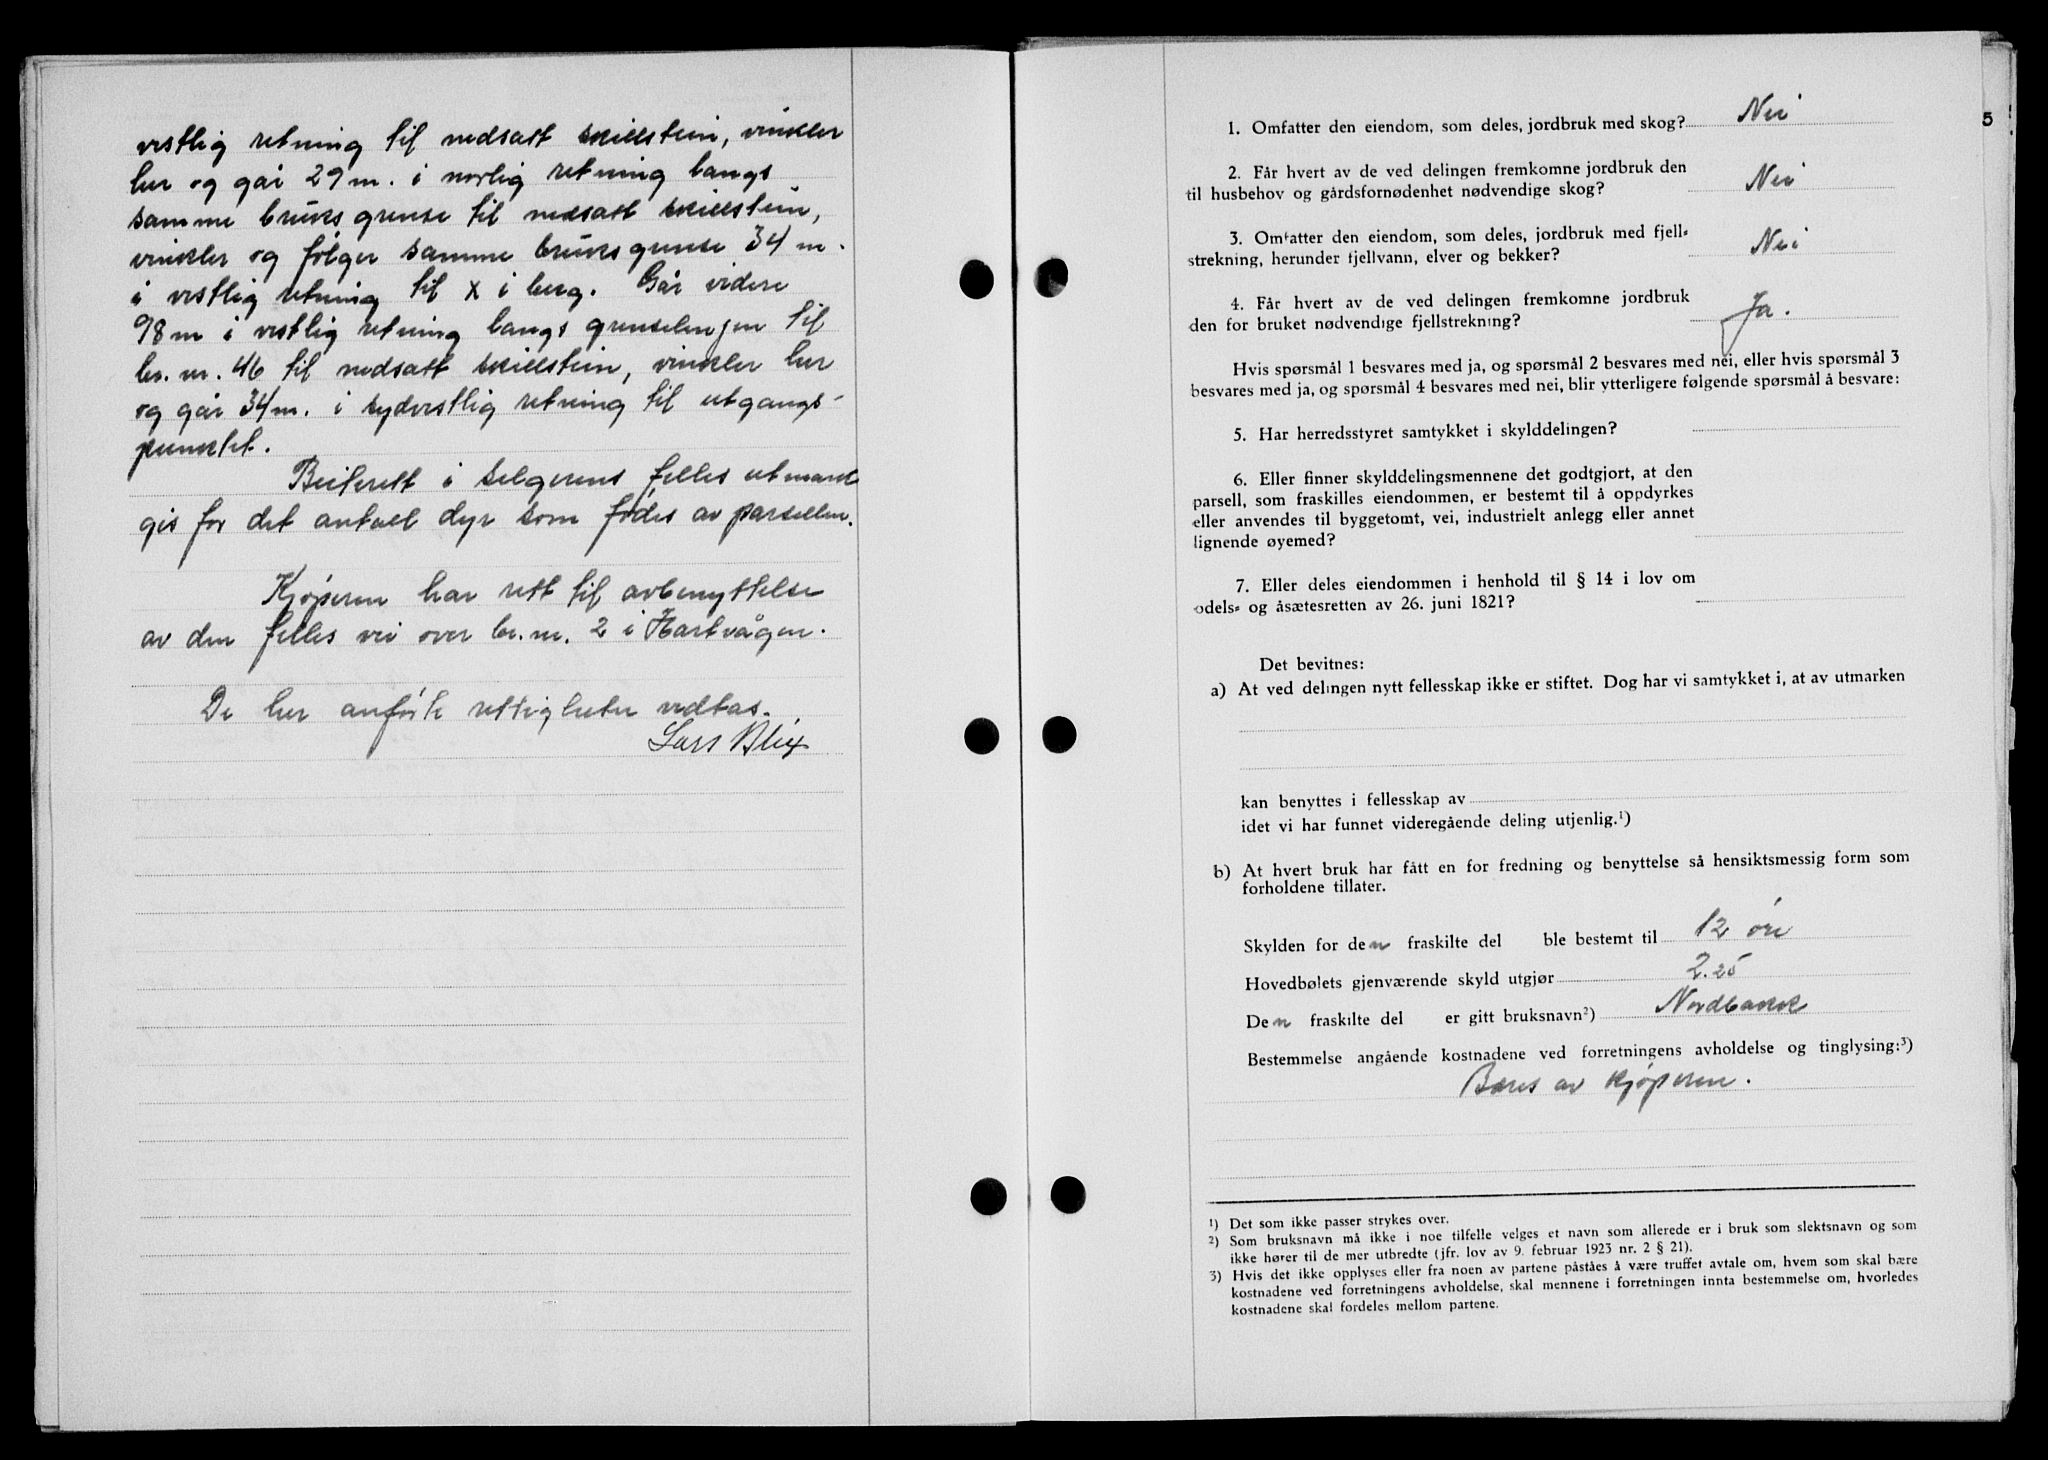 vestlig retning til nedsatt skillstein, vinkler
her og går 29 m. i norlig retning langs
samme bruks grense til nedsatt skillstein,
vinkler og følger samme bruksgrense 34 m.
i vestlig retning til x i berg. Går videre
98 m i vestlig retning langs grenselinjen til
br. nr. 46 til nedsatt skillstein, vinkler her
og går 34 m. i sydvestlig retning til utgangs-
punktet.
Beiterett i selgerens felles utmark
gis for det antall dyr som fødes av parsellen.
Kjøperen har rett til avbenyttelse
av den felles vei over br. nr. 2 i Hartvågen.
De her anførte rettigheter vedtas.
Lars Blix
5
1. Omfatter den eiendom, som deles, jordbruk med skog? Nei
2. Får hvert av de ved delingen fremkomne jordbruk den
til husbehov og gårdsfornødenhet nødvendige skog? Nei
3. Omfatter den eiendom, som deles, jordbruk med fjell-
strekning, herunder fjellvann, elver og bekker? Nei
4. Får hvert av de ved delingen fremkomne jordbruk
den for bruket nødvendige fjellstrekning? Ja.
Hvis spørsmål 1 besvares med ja, og spørsmål 2 besvares med nei, eller hvis spørsmål 3
besvares med ja, og spørsmål 4 besvares med nei, blir ytterligere følgende spørsmål å besvare:
5. Har herredsstyret samtykket i skylddelingen?
6. Eller finner skylddelingsmennene det godtgjort, at den
parsell, som fraskilles eiendommen, er bestemt til å oppdyrkes
eller anvendes til byggetomt, vei, industrielt anlegg eller annet
lignende øyemed?
7. Eller deles eiendommen i henhold til § 14 i lov om
odels- og åsætesretten av 26. juni 1821?
Det bevitnes:
a) At ved delingen nytt fellesskap ikke er stiftet. Dog har vi samtykket i, at av utmarken
kan benyttes i fellesskap av
idet vi har funnet videregående deling utjenlig.¹)
b) At hvert bruk har fått en for fredning og benyttelse så hensiktsmessig form som
forholdene tillater.
Skylden for den fraskilte del ble bestemt til 12 øre
Hovedbølets gjenværende skyld utgjør 2.25
Den fraskilte del er gitt bruksnavn²) Nordbakk
Bestemmelse angående kostnadene ved forretningens avholdelse og tinglysing:³)
Bæres av kjøperen.
¹) Det som ikke passer strykes over.
²) Som bruksnavn må ikke i noe tilfelle velges et navn som allerede er i bruk som slektsnavn og som
ikke hører til de mer utbredte (jfr. lov av 9. februar 1923 nr. 2 § 21).
³) Hvis det ikke opplyses eller fra noen av partene påståes å være truffet avtale om, hvem som skal bære
kostnadene ved forretningens avholdelse, skal mennene i forretningen innta bestemmelse om, hvorledes
kostnadene skal fordeles mellom partene.